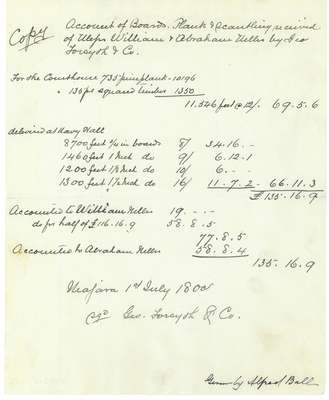 Copy
Account of Boards. Plank & Scantling received
of Messrs William & Abraham Nelles by Geo
Forsyth & Co.
For the Courthouse 735 pine plank - 10196
" 130 ps squared timber 1350
11.546 feet @ 12/. 69.5.6
delivered at Navy Hall
8700 feet in boards 8/ 34.16.-
1460 feet 1 Inch do 9/ 6.12.1
1200 feet 1 1/4 Inch do 10/ 6.-.-
1300 feet 1 1/2 Inch do 16/ 11.7.2. 66.11.3
£ 135.16.9
Accounted to William Nelles 19.-.-
do for half of £116.16.9 58.8.5
77.8.5
Accounted to Abraham Nelles 58.8.4
135.16.9
Niagara 1st July 1800
sgd Geo. Forsyth & Co.
Given by Alfred Ball